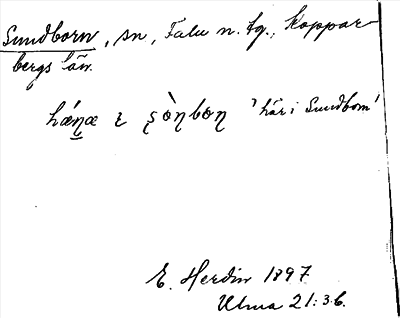 Sundborn, sn, Falu n. tg., Koppar-
bergs län.
hǽṉæ ɩ ʂòɳboɳ 'här i Sundborn'
E. Herdin 1897
Ulma 21:36.